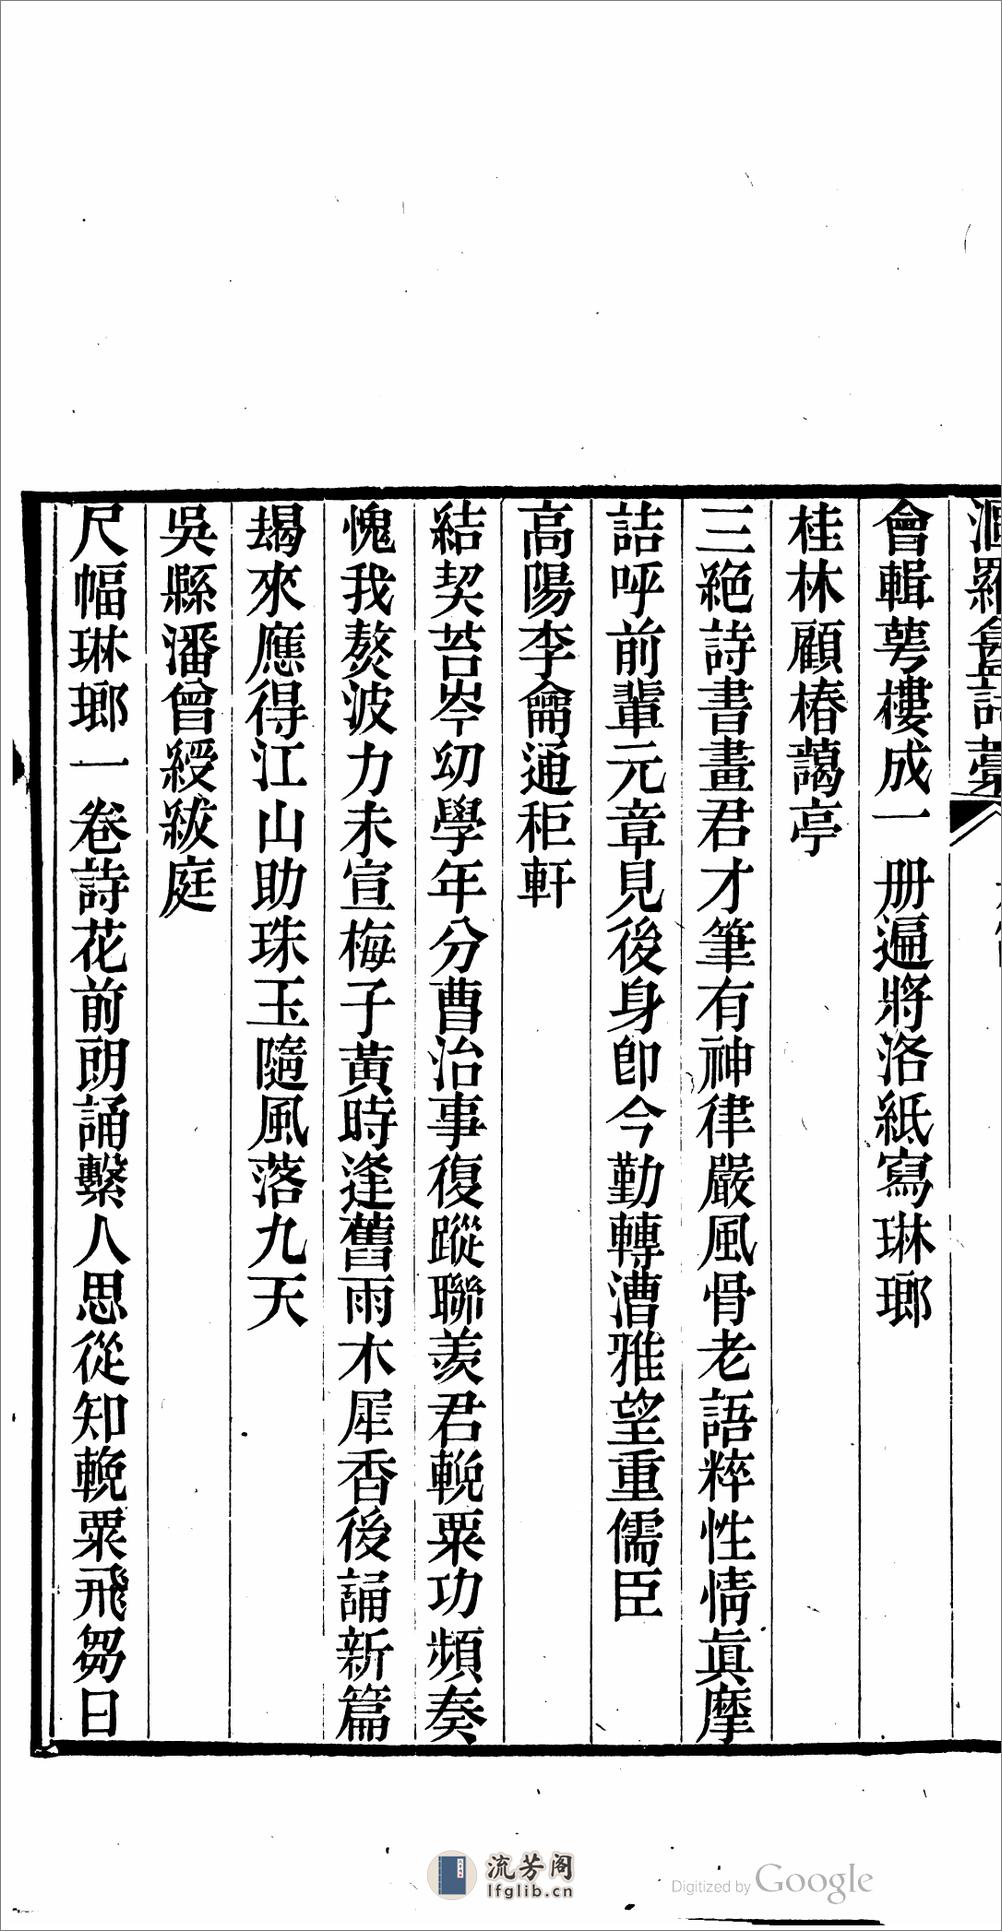 會輯萼樓成一册遍將洛紙寫琳瑯
桂林顧椿藹亭
三絶詩書畫君才筆有神律嚴風骨老語粹性情眞摩
詰呼前輩元章見後身卽今勤轉漕雅望重儒臣
高陽李龠通秬軒
結契苔岑幼學年分曹治事復蹤聯羨君輓粟功頻奏
愧我熬波力未宣梅子黃時逢舊雨木犀香後誦新篇
朅來應得江山助珠玉隨風落九天
吳縣潘曾綬紱庭
尺幅琳瑯一卷詩花前朗誦繫人思從知輓粟飛芻日
流芳阁
lfglib.cn
Digitized by Google